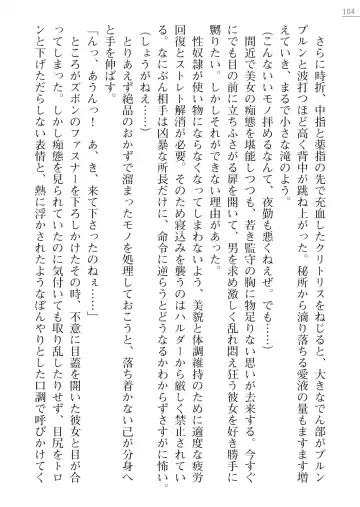 104
さらに時折、中指と薬指の先で充血したクリトリスをねじると、大きなでん部がプルン
プルンと波打つほど高く背中が跳ね上がった。秘所から滴り落ちる愛液の量もますます増
えていき、まるで小さな滝のよう。
(こんないいモノ拝めるなんて、夜勤も悪くねえぜ。でも……)
間近で美女の痴態を堪能しつつも、若き監守の胸に物足りない思いが去来する。今すぐ
にでも目の前に立ちふさがる扉を開いて、男を求め激しく乱れ悶え狂う彼女を好き勝手に
嬲りたい。しかしそれができない理由があった。
性奴隷が使い物にならなくなってしまわないよう、美貌と体調維持のために適度な疲労
回復とストレト解消が必要。そのため寝込みを襲うのはハルダーから厳しく禁止されてい
る。なにぶん相手は凶暴な所長だけに、命令に逆らうとどうなるかわからずさすがに怖い。
(しょうがねえ……)
とりあえず絶品のおかずで溜まったモノを処理しておこうと、落ち着かない己が分身へ
と手を伸ばす。
「んっ、あうんっ!　あ、き、来て下さったのねぇ……」
ところがズボンのファスナーを下ろしかけたその時、不意に目蓋を開いた彼女と目が合
ってしまった。しかし痴態を見られていたのに気付いても取り乱したりせず、目尻をトロ
ンと下げただらしない表情と、熱に浮かされたようなぼんやりとした口調で呼びかけてく